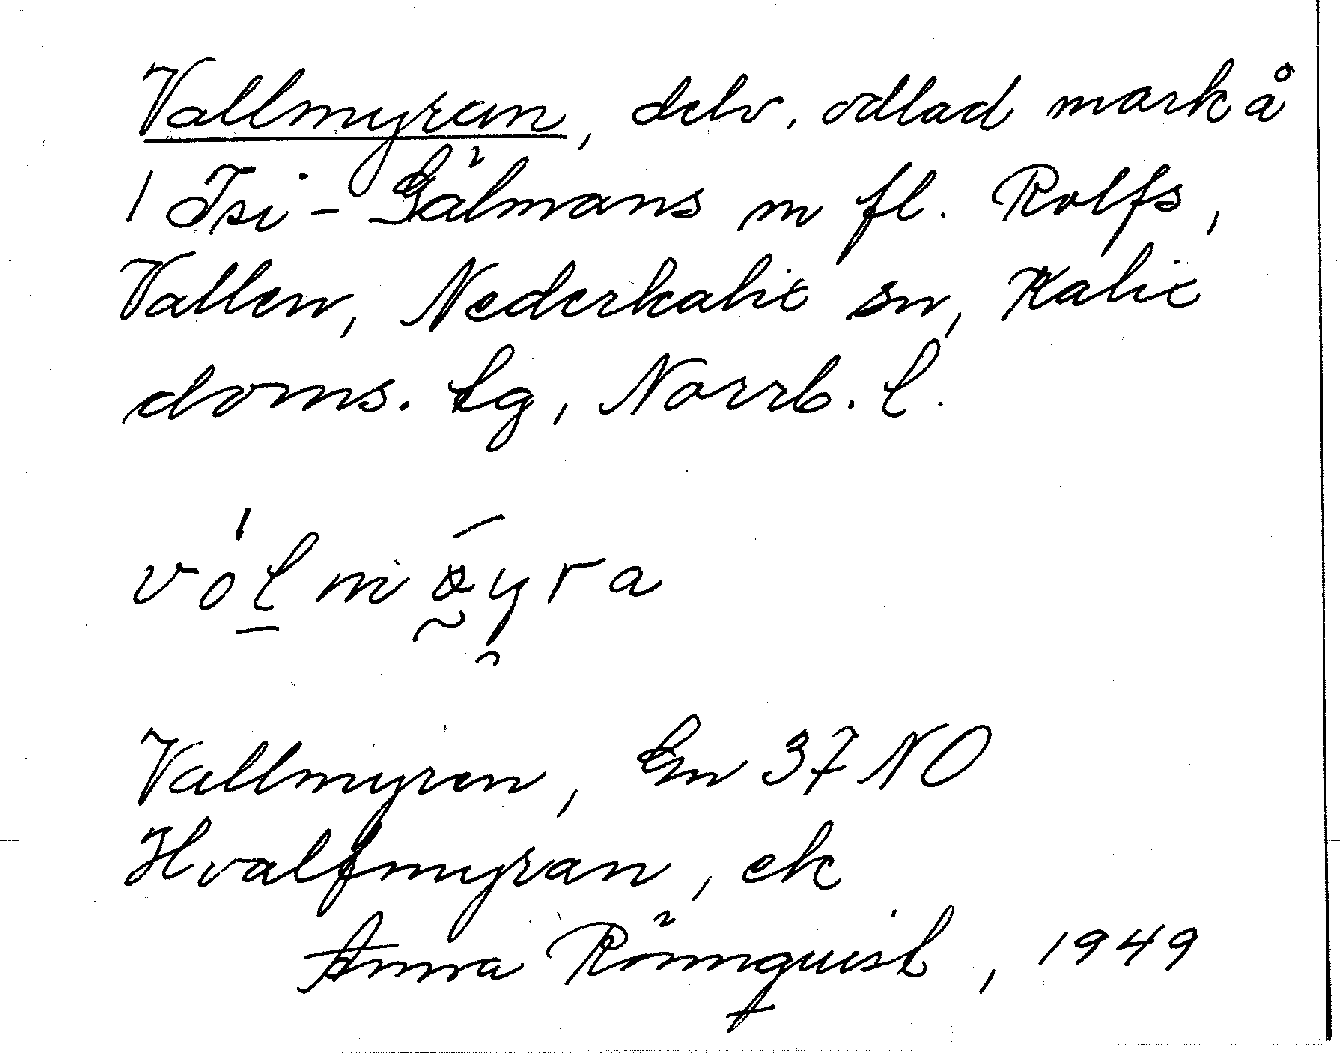 Vallmyran, delv. odlad mark å
1 Isi-Gälmans m fl. Rolfs,
Vallen, Nederkalix sn, Kalix
doms. lg, Norrb. l.
vólmöyra
Vallmyren, Gm 37 NO
Hvalfmyran, ek
Anna Rönnquist, 1949